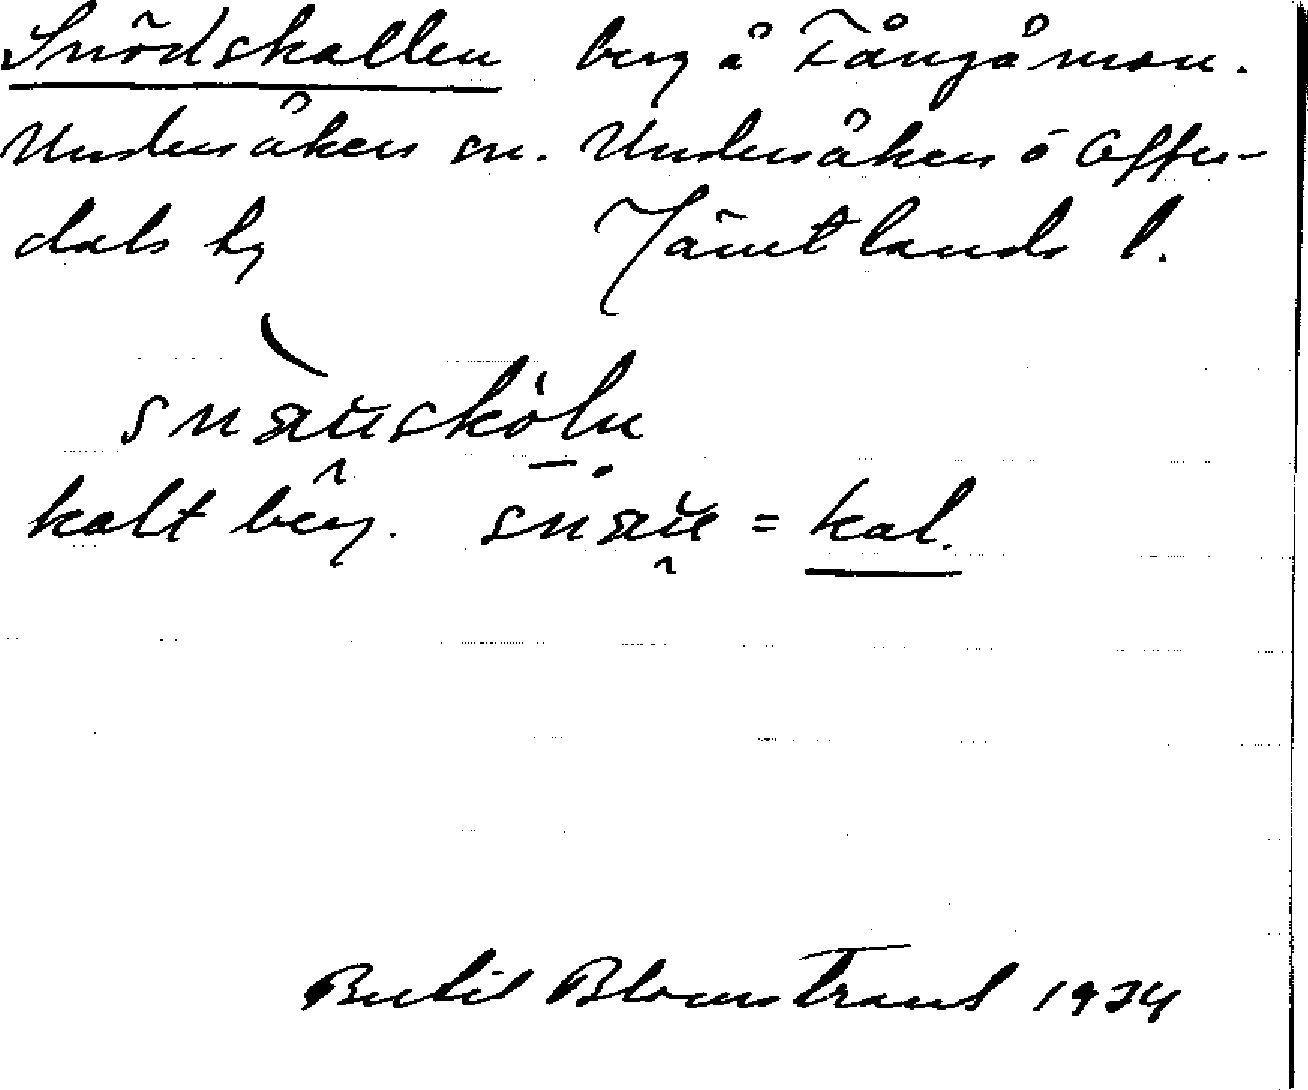 Snödskallen berg å Fångåmon.
Undersåkers sn. Undersåkers o Offer-
dals hg Jämtlands l.
kalt berg. = kal.
Bertil Blomstrand 1934